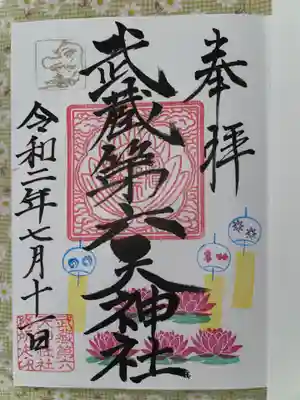 奉拝
武蔵第六天神社
令和二年七月十一日
武蔵第六
天神社